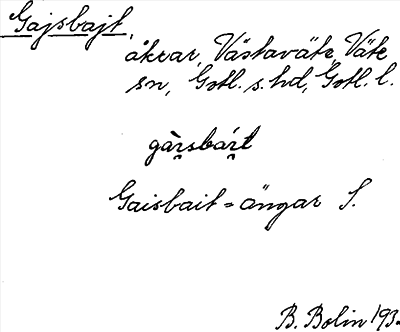 Gajsbajt,
åkrar, Västaväte, Väte
sn, Gotl. s. hd, Gotl. l.
Gaisbait-ängar S.
B. Bolin 193